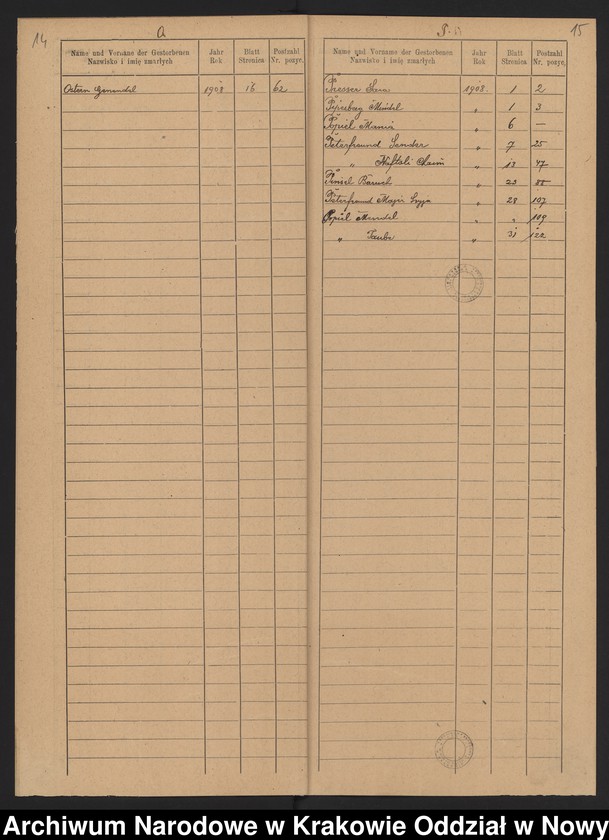 14
O
Name und Vorname der Gestorbenen
Nazwisko i imię zmarłych
Jahr
Rok
Blatt
Stronica
Postzahl
Nr. pozyc.
1908 16 62
15
P.
Name und Vorname der Gestorbenen
Nazwisko i imię zmarłych
Jahr
Rok
Blatt
Stronica
Postzahl
Nr. pozyc.
Presser Sara 1908. 1 2
Mendel " 1 3
Popiel " 6 —
Peterfreund Sender " 7 25
" Naftali Chaim " 13 47
Baruch " 23 88
Peterfreund " 28 107
Popiel Mendel " " 109
" Taube " 31 122
Archiwum Narodowe w Krakowie Oddział w Nowy